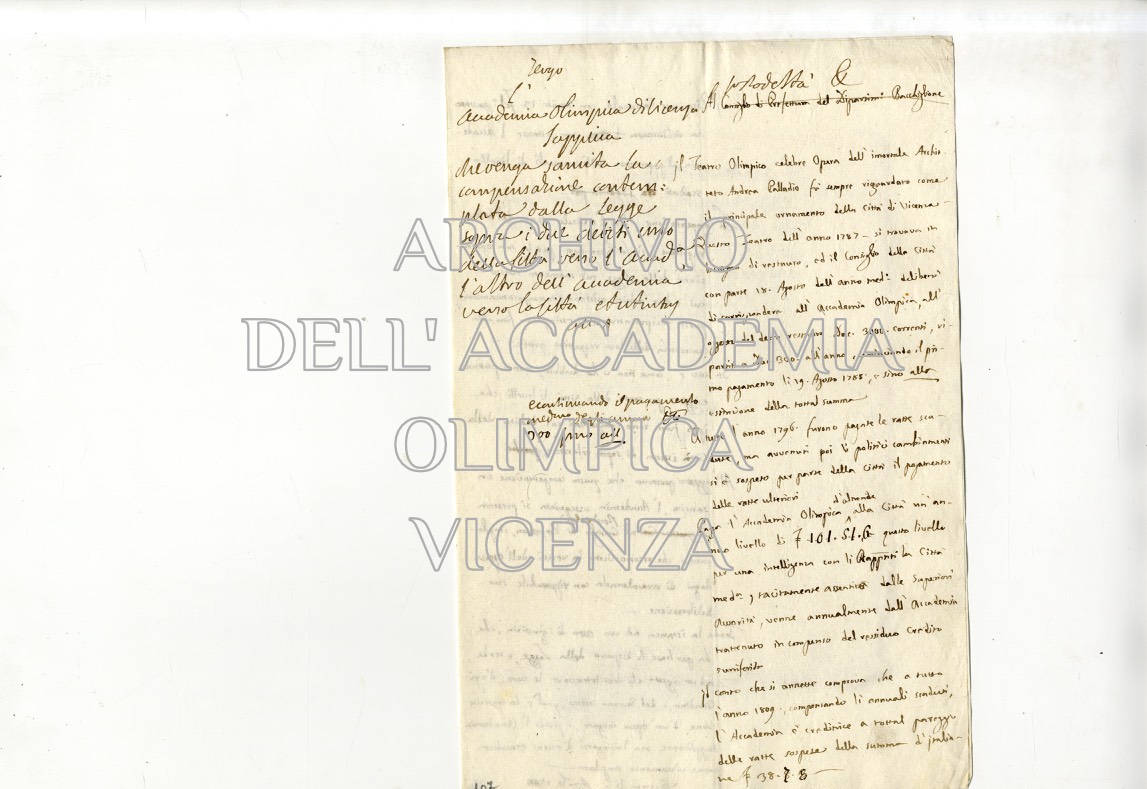 Tergo
L'
Accademia Olimpica di Vicenza
Supplica
che venga sancita la
compensazione contem:
plata dalla Legge
sopra i due debiti uno
della Città verso l'Accad.a
l'altro dell'Accademia
verso la Città
e continuando il pagamento
300
Al
Consiglio di Prefettura del Dipartim.o Bacchiglione
Il Teatro Olimpico celebre Opera dell'imortale Archi-
teto Andrea Palladio fù sempre riguardato come
il principale ornamento della Città di Vicenza
Questo Teatro dell'anno 1787 - si trovava in
bisogno di restauro, ed il Consiglio della Città
con parte 18. Agosto dell'anno med.o deliberò
di corrispondere all'Accademia Olimpica, all'
oggetto del detto restauro Duc. correnti,
300 - all'anno, il pri-
mo pagamento li 19. Agosto 1788, e sino alla
estinzione della total summa
A tutto l'anno 1796. furono pagate le ratte scu-
dute, ma avvenuti poi li politici cambiamenti
si è sospeso per parte della Città il pagamento
delle ratte ulteriori
d'altronde
Paga l'Accademia Olimpica alla Città un an-
nuo livello di 101.51.6 questo livello
per una intelligenza con li Rappnti la Città
med.a, tacitamente assentita dalle Superiori
Autorità, venne annualmente dall'Accademia
trattenuto in compenso del residuo Credito
sumferito
Il conto che si annette comprova che a tutto
l'anno 1809., compensando li annuali scaduti,
l'Accademia è creditrice a total pareggio
delle ratte sospese della summa d'italia-
ne 38.7.8
107
ARCHIVIO
DELL'ACCADEMIA
OLIMPICA
VICENZA